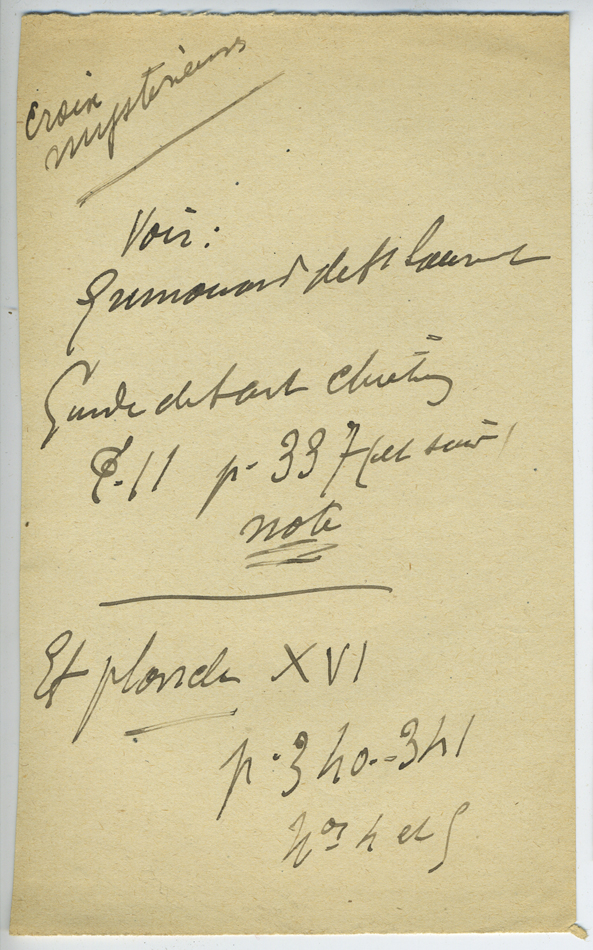 Croix
mystérieuses
Voir :
Grimouard de St Laurent
Guide de l'art chrétien
T. II p. 337 (et suiv)
note
Et planche XVI
p. 340-341
Nos 4 et 5